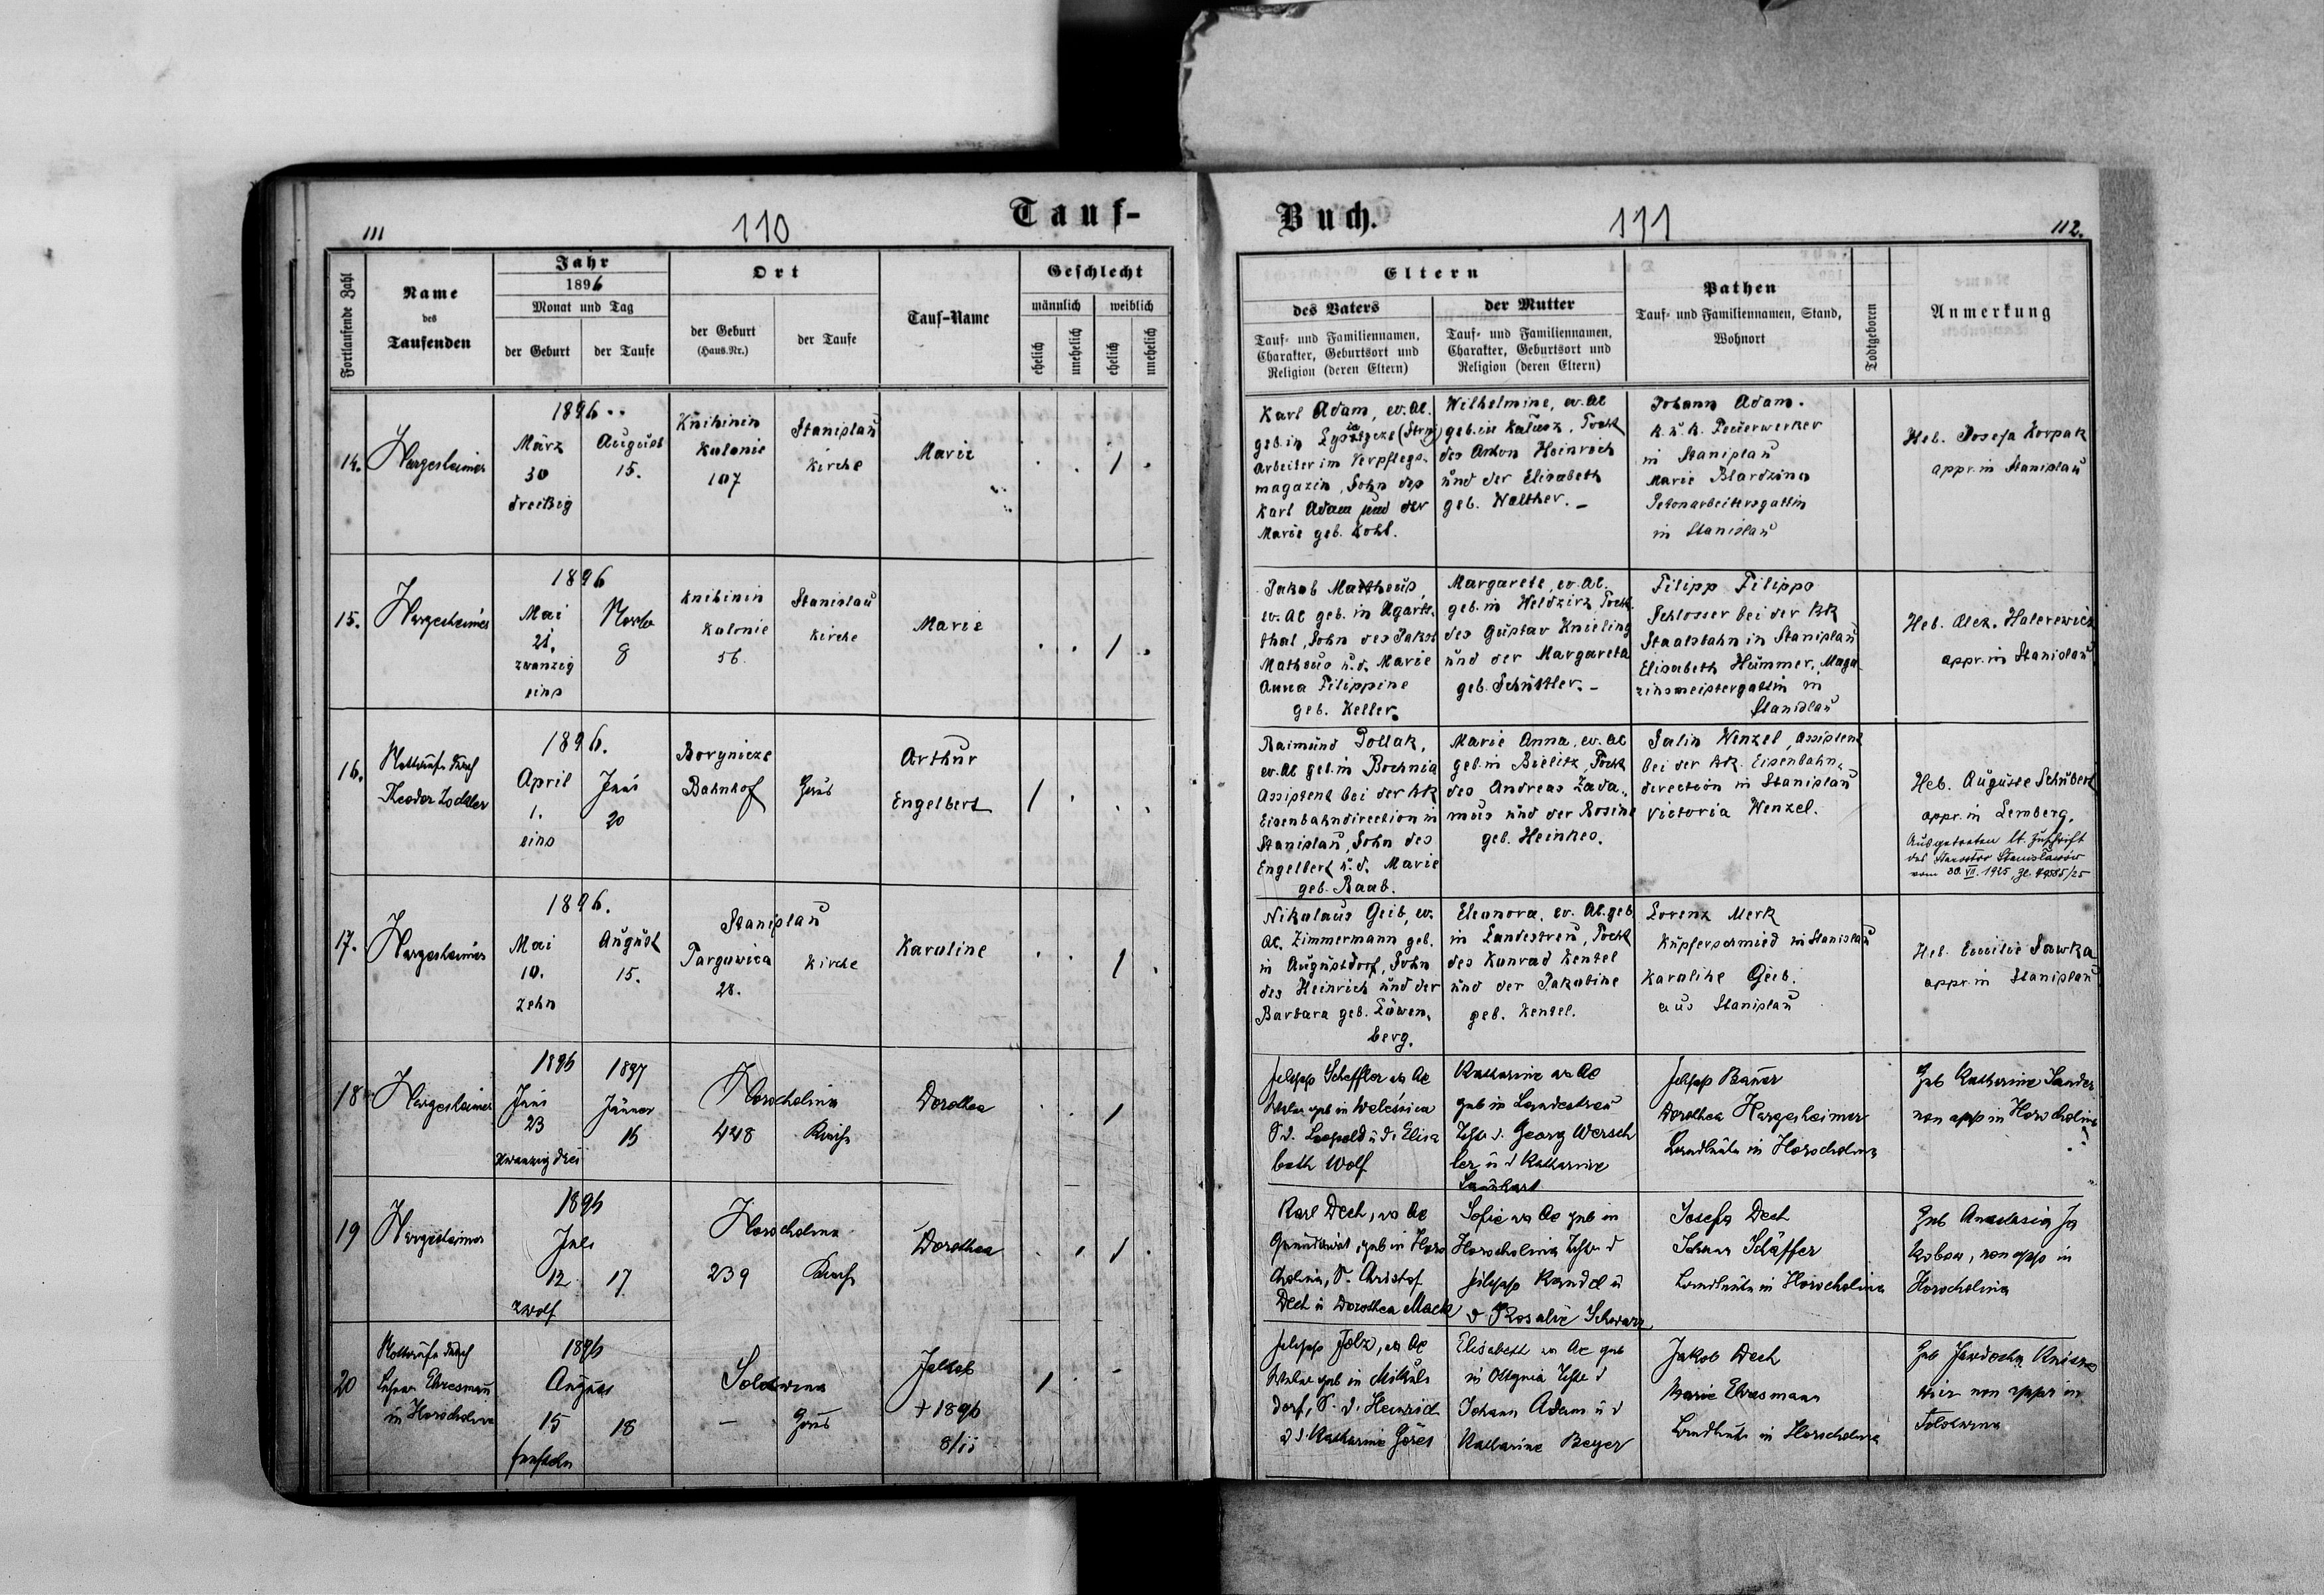 Tauf-
Buch.
111
110
111
112.
Fortlaufende Zahl
Name
des
Taufenden
Jahr
1896
Monat und Tag
der Geburt
der Taufe
Ort
der Geburt
(Haus.Nr.)
der Taufe
Tauf-Name
Geschlecht
männlich
weiblich
ehelich
unehelich
ehelich
unehelich
Eltern
des Vaters
Tauf- und Familiennamen,
Charakter, Geburtsort und
Religion (deren Eltern)
der Mutter
Tauf- und Familiennamen,
Charakter, Geburtsort und
Religion (deren Eltern)
Pathen
Tauf- und Familiennamen, Stand,
Wohnort
Todtgeboren
Anmerkung
14.
Hargesheimer
1896
März
30
dreißig
August
15.
Knihinin
Kolonie
107
Stanislau
Kirche
Marie
1
Karl Adam, ev. Al.
geb. in
Arbeiter im Verpflegs-
magazin, Sohn des
Karl Adam und der
Marie geb. Kohl.
Wilhelmine, ev. Al
geb. in Kalusz, Tocht
des Anton Heinrich
und der Elisabeth
geb. Walther. -
Johann Adam.
k. u. k. Feuerwerker
in Stanislau
Marie
in Stanislau
Heb. Josefa Korpak
appr. in Stanislau
15.
Hargesheimer
1896
Mai
21.
zwanzig
eins
Novb
8
Knihinin
Kolonie
56.
Stanislau
Kirche
Marie
1
Jakob Mattheus,
ev. Al geb. in Ugarts-
thal, Sohn des Jakob
Matheus u. d. Marie
Anna Filippine
geb. Keller.
Margarete, ev. Al.
geb. in Weldzirz, Tocht.
des Gustav Knieling
und der Margareta
geb. Schüttler. -
Filipp Filippo
Schlosser bei der kk
Staatsbahn in Stanislau
Elisabeth Hummer, Maga-
zinsmeistergattin in
Stanislau
Heb. Alex. Halerewicz
appr. in Stanislau
16.
Nottaufe durch
Theodor Zöckler
1896.
April
1.
eins
Juni
20
Borynicze
Bahnhof
Haus
Arthur
Engelbert
1
Raimund Pollak,
ev. Al geb. in Bochnia
Assistent bei der kk
Eisenbahndirection in
Stanislau, Sohn des
Engelbert u. d. Marie
geb. Raab.
Marie Anna, ev. Al
geb. in Bielitz, Tocht
des Andreas Zada-
mus und der Rosine
geb. Heinkes.
Wenzel, Assistent
bei der kk. Eisenbahn-
direction in Stanislau
Victoria Wenzel.
Heb. Auguste Schubert
appr. in Lemberg.
Ausgetreten lt. Zuschrift
des Starostwo Stanisławów
vom 30. VII. 1925, Zl.
17.
Hargesheimer
1896.
Mai
10.
zehn
August
15.
Stanislau
Targowica
28.
Kirche
Karoline
1
Nikolaus Geib, ev.
Al. Zimmermann geb.
in Augustdorf, Sohn
des Heinrich und der
Barbara geb. Löwen-
berg.
Eleonora, ev. Al. geb
in Landestreu, Tocht
des Konrad Kentel
und der Jakobine
geb. Kentel.
Lorenz Merk
Kupferschmied in Stanislau
Karoline Geib.
aus Stanislau
Heb. Emilie Sawka
appr. in Stanislau
18.
Hargesheimer
1896
Juni
23
zwanzig drei
1897
Jänner
Horocholina
448
Kirche
Dorothea
1
Filipp Scheffler ev Ac
Weber geb in Weleśnica
S. d. Leopold u. d. Elisa
beth Wolf
Katharine ev Ac
geb in Landestreu
Georg Wersch
ler u d Katharine
Filipp Bauer
Dorothea Hargesheimer
Landleute in Horocholina
Heb Katharine Sander
non app in Horocholina
19
Hargesheimer
1896
Juli
12
zwölf
17
Horocholina
239
Kirche
Dorothea
1
Karl Dech, ev Ac
Grundwirt, geb in Horo
cholina, S. Christof
Dech u Dorothea Mack
Sofie ev Ac geb in
Horocholina
Filipp Kandel u
d Rosalie Schwarz
Josefa Dech
Johann Schäffer
Landleute in Horocholina
Heb Anastasia Ja
non app in
Horocholina
20
Nottaufe durch
Lehrer Ehresmann
in Horocholina
1896
August
15
fünfzehn
18
Solotwina
—
Haus
Jakob
+ 1896
8/11
1
Filipp Folz, ev Ac
Weber geb in Mikuls
dorf, S. d. Heinrich
u d. Katharine Göres
Elisabeth ev Ac geb
in Ottynia
Johann Adam u d
Katharine Beyer
Jakob Dech
Marie Ehresmann
Landleute in Horocholina
non appr in
Solotwina